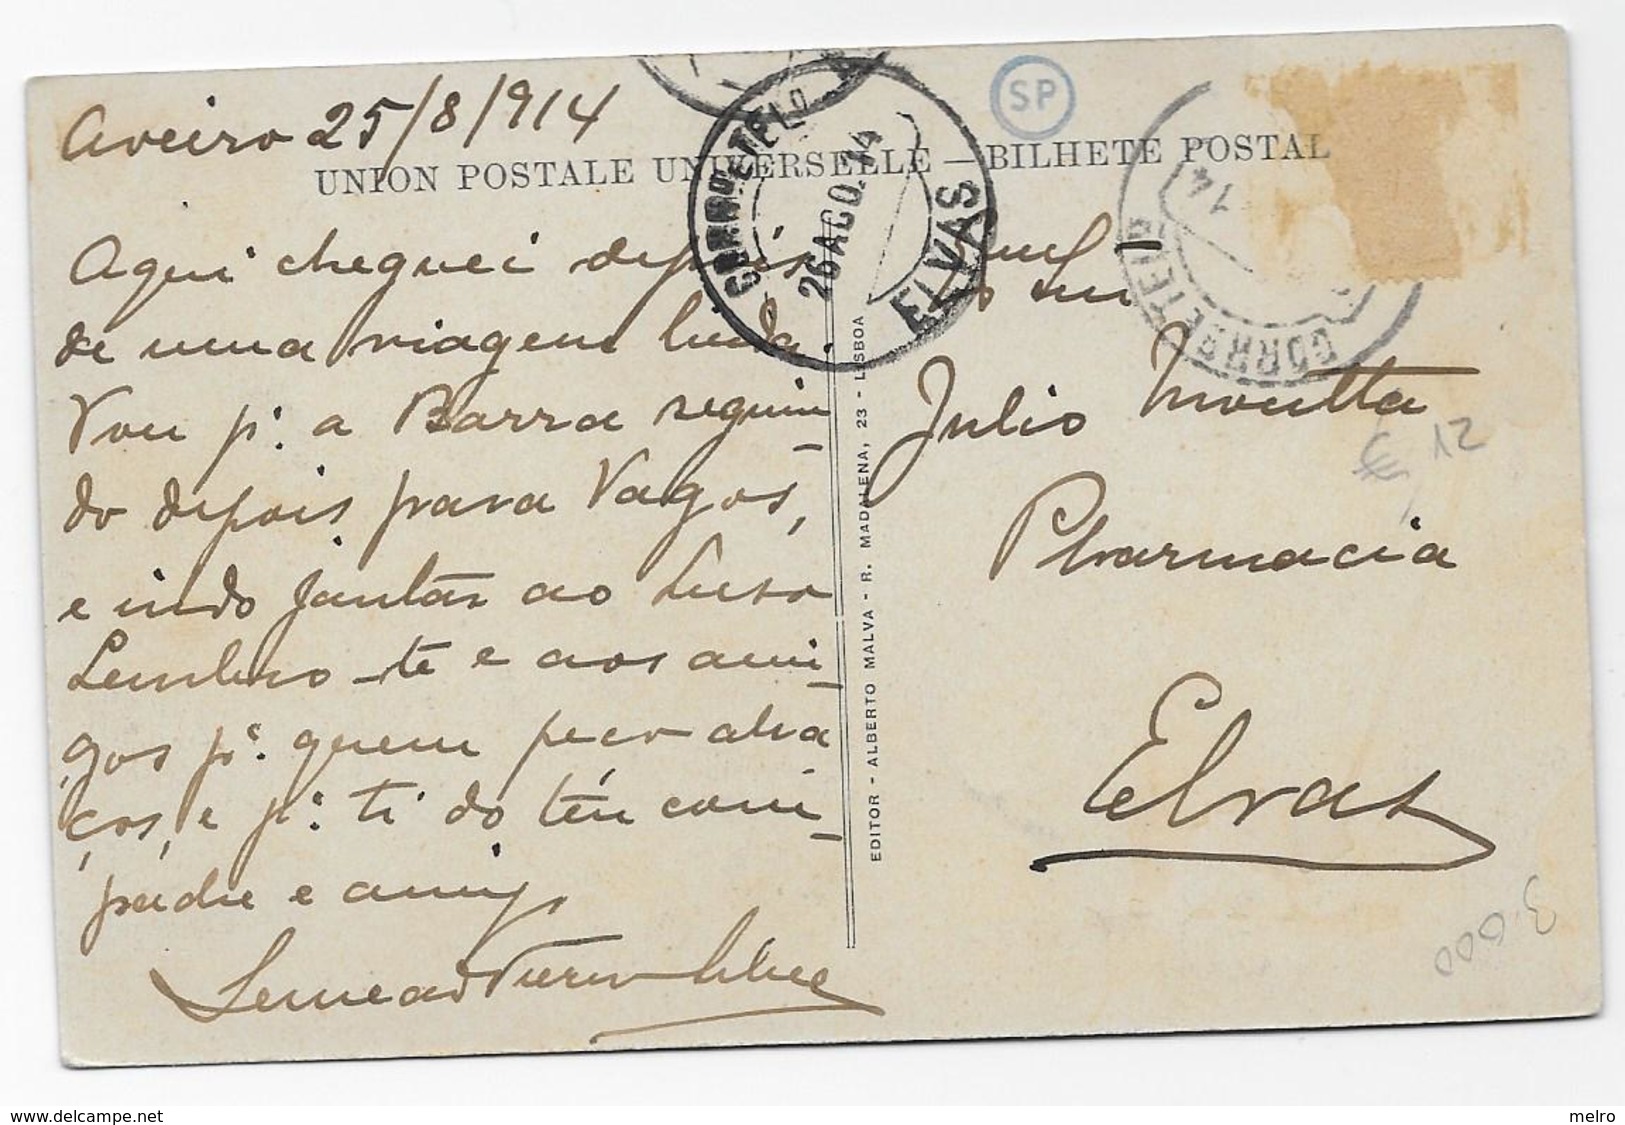 Aveiro 25/8/914
UNION POSTALE UNIVERSELLE — BILHETE POSTAL
SP
CORRO E TELO
26 AGO. 14
ELVAS
Aqui cheguei depois
de uma viagem linda.
Vou p.ª a Barra seguin-
do depois para Vagos,
e indo jantar ao Luso
Lembro-te e aos ami-
gos p.ª quem peço abra-
ços, e p.ª ti do teu com-
padre e amigo
EDITOR - ALBERTO MALVA - R. MADALENA, 23 - LISBOA
CORREIO E TELEG
14
Julio Moutta
Pharmacia
Elvas
€ 12
3.600
www.delcampe.net
melro